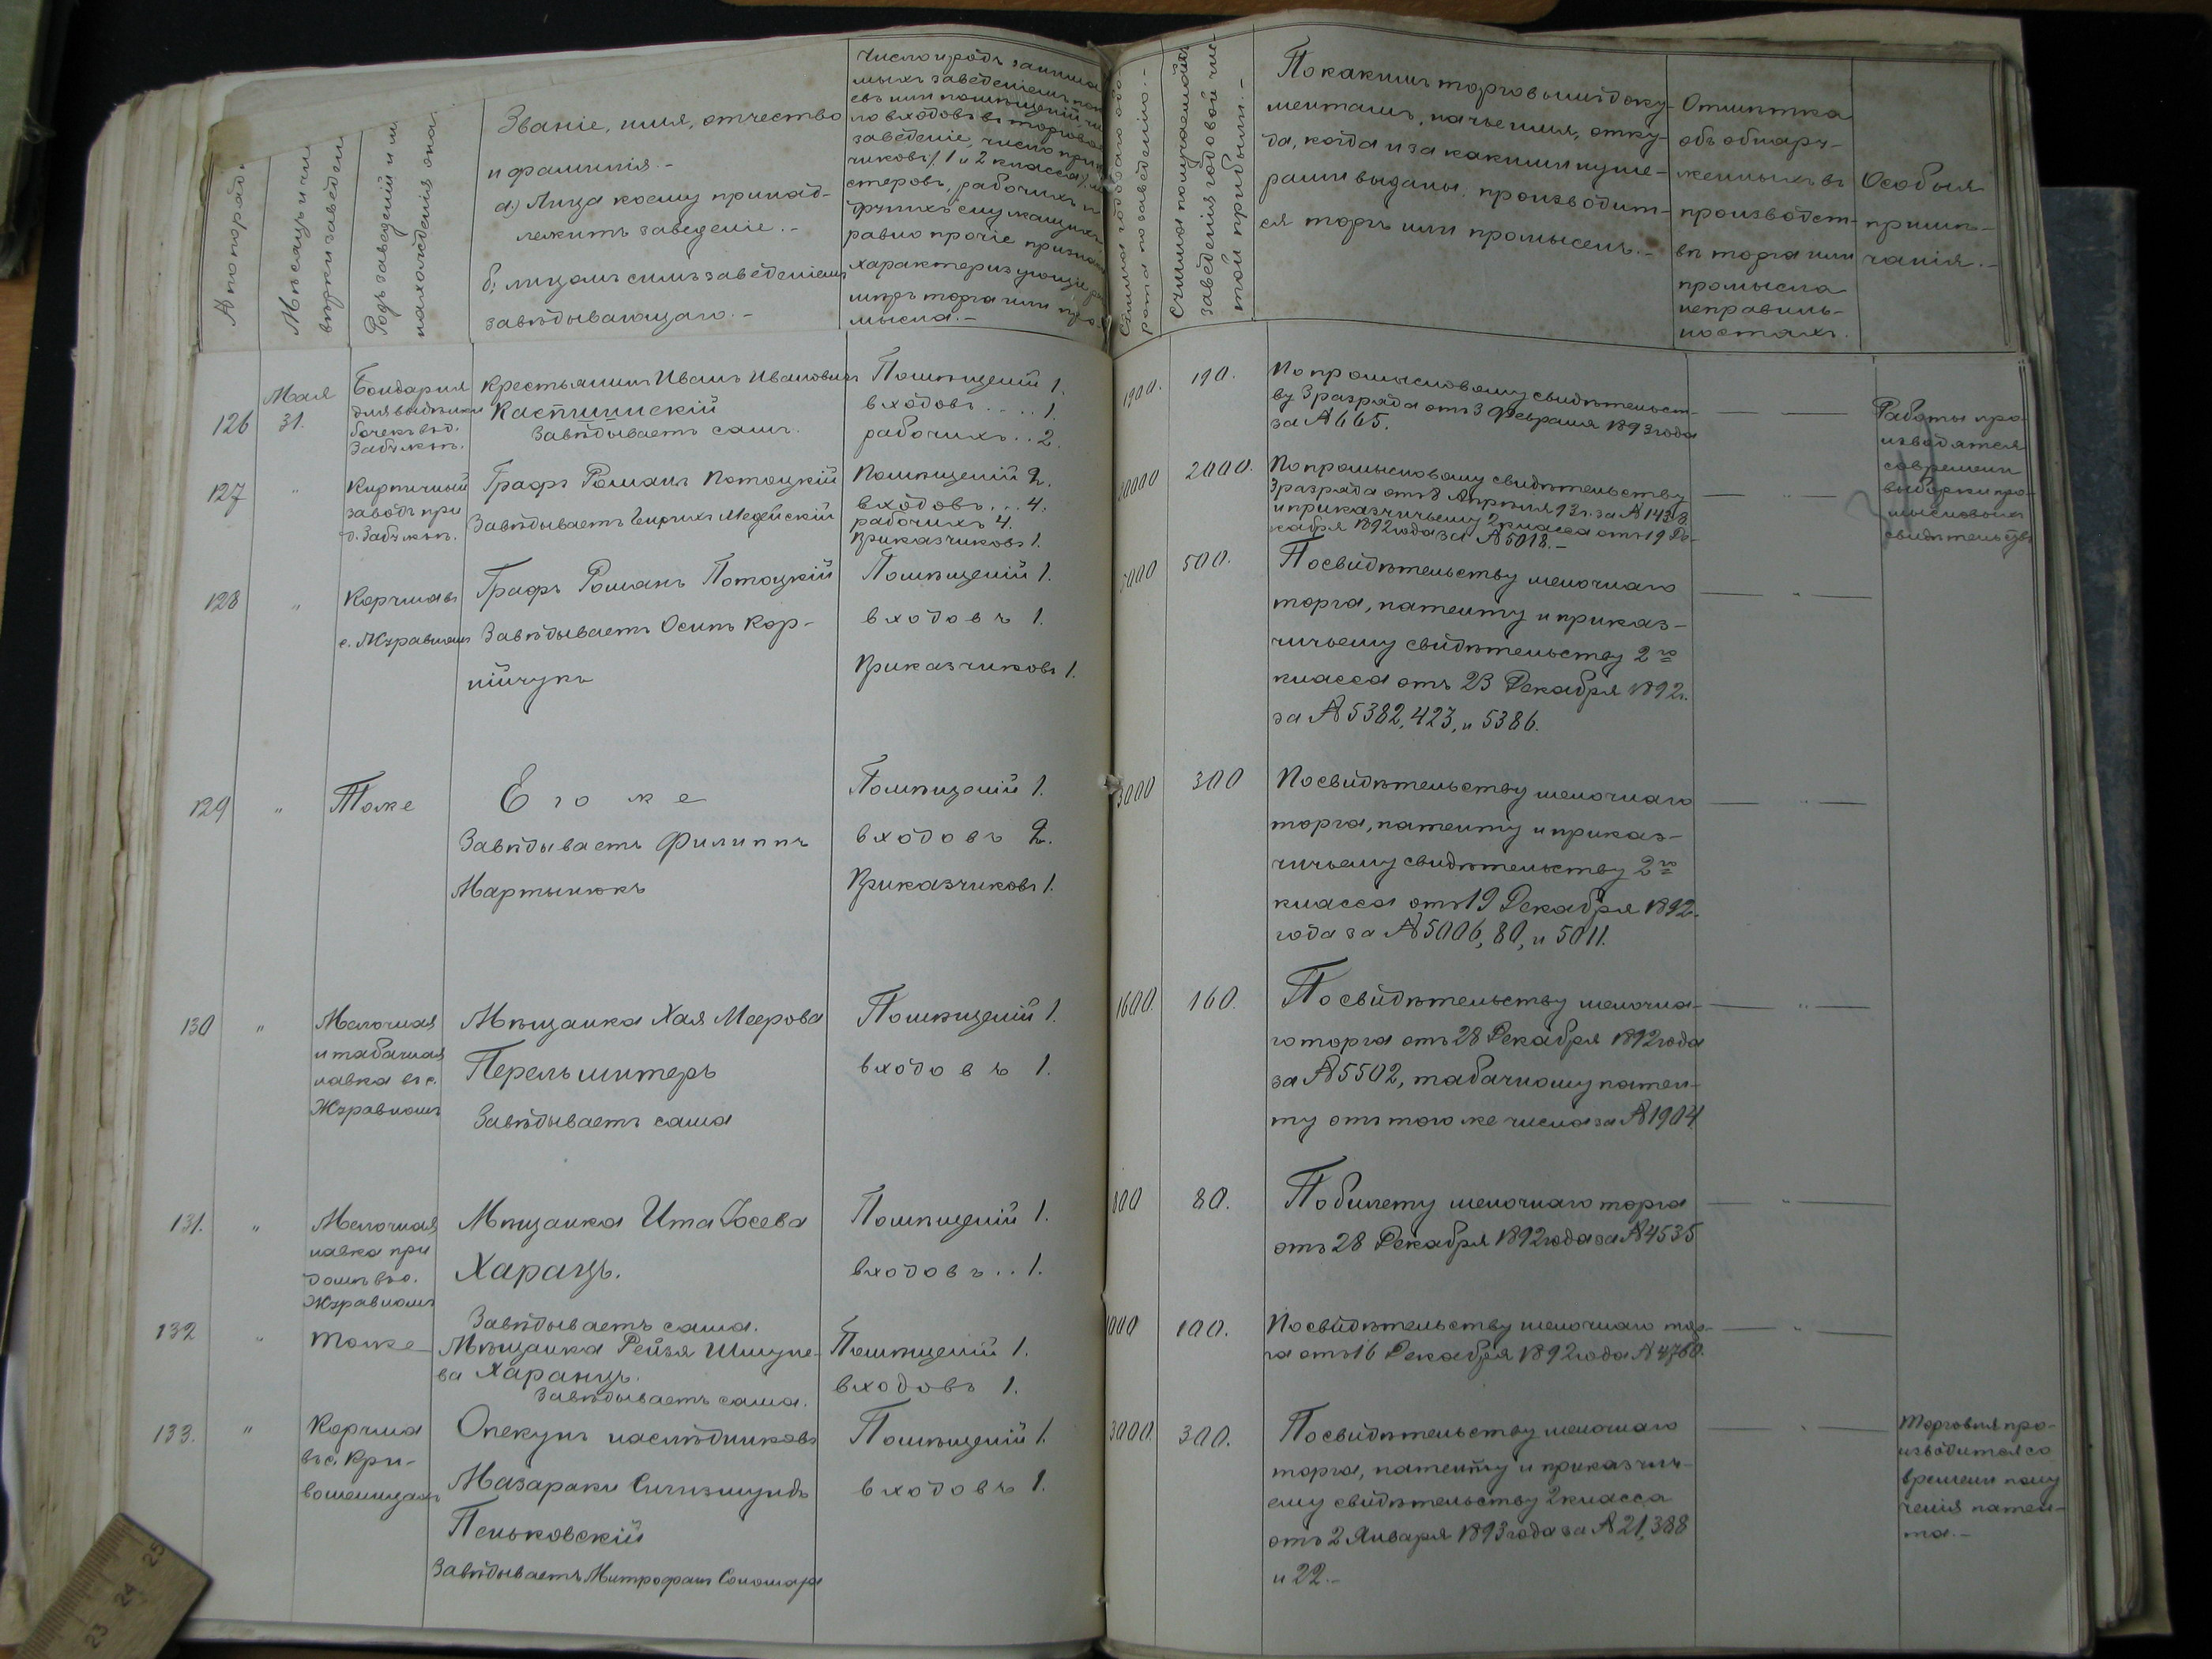 Званіе, имя, отчество
и фамилія.-
а) Лица коему принад-
лежитъ заведеніе.-
б, лицомъ симъ заведеніемъ
завѣдывающаго.-
Число и родъ занима
мыхъ заведеніемъ
ло входовъ въ торгов
заведеніе, число при
чиковъ (1 и 2 класса),
стеровъ, рабочихъ и
другихъ служащихъ
равно прочіе признаки
характеризующіе
мѣръ торга или про-
мысла.-
заведенія годовой чис-
той прибыли.-
По какимъ торговымъ доку-
ментамъ, на чье имя, отку-
да, когда и за какими нуме-
рами выданы, производит-
ся торгъ или промыселъ.-
Отмѣтка
объ обнару-
женныхъ въ
производст-
вѣ торга или
промысла
неправиль-
ностяхъ.
Особыя
примѣ-
чанія.-
126
Мая
31.
Бондарня
для выдѣлки
бочекъ въ д.
Крестьянинъ Иванъ Ивановичъ
Завѣдываетъ самъ.
Помѣщеній 1.
входовъ....1.
рабочихъ..2.
1900.
190.
По промысловому свидѣтельст-
ву 3 разряда отъ 3 Февраля 1893 года
за № 665.
— —
Работы про-
изводятся
со времени
выборки про-
мысловаго
свидѣтельства
127
"
Кирпичный
заводъ при
Графъ Романъ Потоцкій
Завѣдываетъ Генрихъ Медейскій
Помѣщеній 2.
входовъ...4.
рабочихъ 4.
Приказчиковъ 1.
20000
2000.
По промысловому свидѣтельству
3 разряда отъ 8 Апрѣля 93 г. за № 1438
и приказчичьему 2 класса отъ 19 Де-
кабря 1892 года за № 5018.-
— " —
128
"
Корчма въ
с. Журавномъ
Графъ Романъ Потоцкій
Завѣдываетъ Осипъ Кор-
нійчукъ
Помѣщеній 1.
входовъ 1.
Приказчиковъ 1.
5000
500.
По свидѣтельству мелочнаго
торга, патенту и приказ-
чичьему свидѣтельству 2го
класса отъ 23 Декабря 1892 г.
за № 5382, 423, и 5386.
— " —
129
"
Тоже
Его же
Завѣдываетъ Филиппъ
Мартынюкъ
Помѣщеній 1.
входовъ 2.
Приказчиковъ 1.
3000
300
По свидѣтельству мелочнаго
торга, патенту и приказ-
чичьему свидѣтельству 2го
класса отъ 19 Декабря 1892
года за № 5006, 80, и 5011.
— " —
130
"
Мелочная
и табачная
лавка въ с.
Журавномъ
Мѣщанка Хая Меерова
Перельмитеръ
Завѣдываетъ сама
Помѣщеній 1.
входовъ 1.
1600.
160.
По свидѣтельству мелочна-
го торга отъ 28 Декабря 1892 года
за № 5502, табачному патен-
ту отъ того же числа за № 1904
— " —
131.
"
Мелочная
лавка при
домѣ въ с.
Журавномъ
Мѣщанка Ита Іосева
Харацъ.
Завѣдываетъ сама.
Помѣщеній 1.
входовъ..1.
800
80.
По билету мелочнаго торга
отъ 28 Декабря 1892 года за № 4535
— " —
132
"
Тоже
Мѣщанка Рейзя Шмуле-
ва Харацъ.
Завѣдываетъ сама.
Помѣщеній 1.
входовъ 1.
1000
100.
По свидѣтельству мелочнаго тор-
га отъ 16 Декабря 1892 года № 4760.
— " —
133.
"
Корчма
въ с. Кри-
Опекунъ наслѣдниковъ
Мазараки Сигизмундъ
Пеньковскій
Завѣдываетъ Митрофанъ Сономаръ
Помѣщеній 1.
входовъ 1.
3000.
300.
По свидѣтельству мелочнаго
торга, патенту и приказчичь-
ему свидѣтельству 2 класса
отъ 2 Января 1893 года за № 21, 388
и 22.-
— " —
Торговля про-
изводится со
времени полу-
ченія патен-
та.-
23 24 25